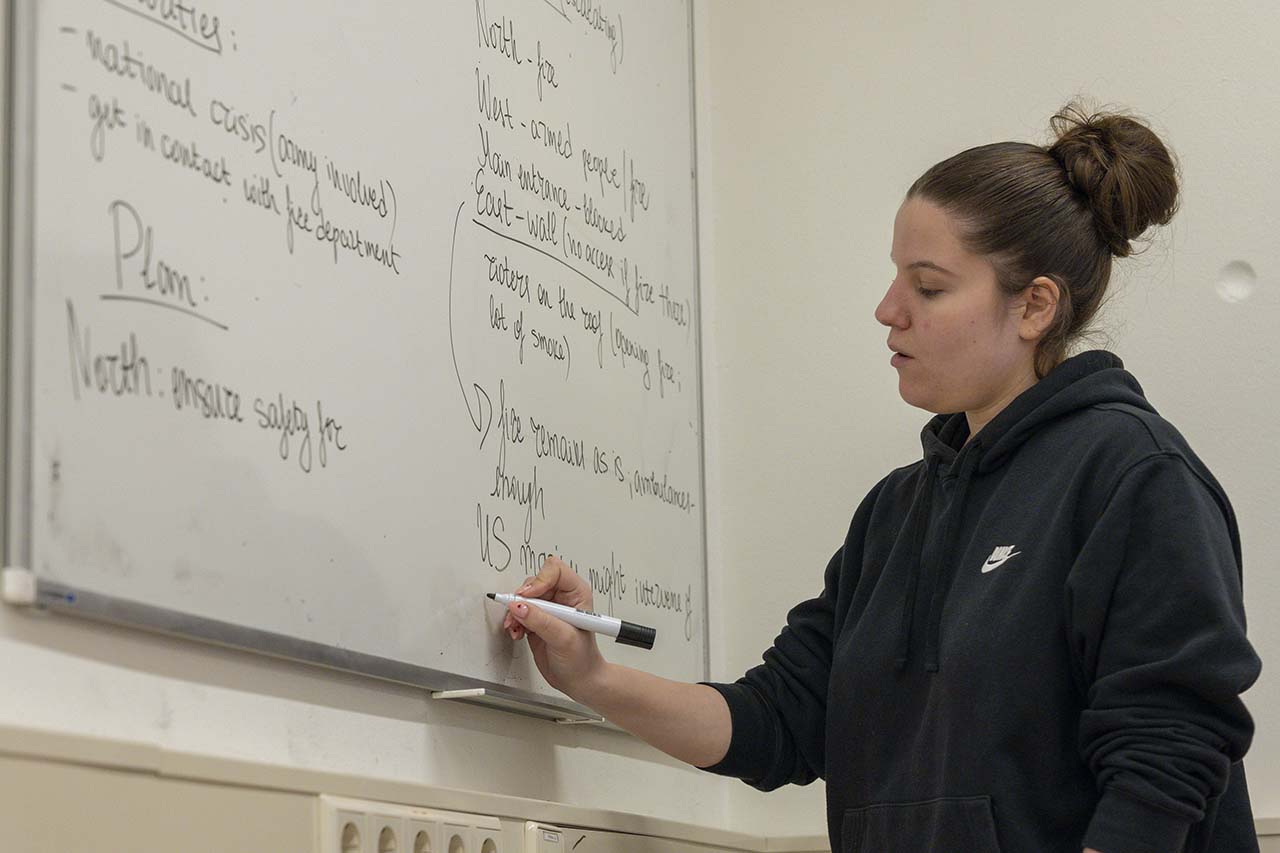 - national crisis (army involved)
- get in contact with fire department
Plan:
North: ensure safety for
escalating)
North - fire
West - armed people / fire
Main entrance - blocked
East - wall (no access if fire there)
rioters on the roof (opening fire;
lot of smoke)
fire remains as is; ambulances -
enough
US marines might intervene if
NIKE